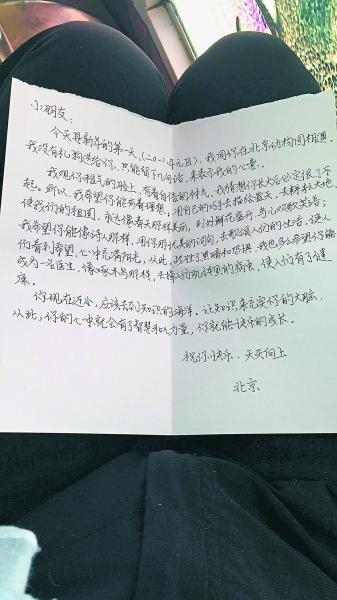 小朋友:
今天是新年的第一天,(二0一八年元旦)。我同你在北京动物园相遇。
我没有礼物送给你,只能留下几句话,来表示我的心意。
我观你稚气的脸上,有着自信的神气,我猜想你长大后必定很了不
起。所以,我希望你能有着理想,用自己的巧手去描绘蓝天、去耕耘大地
使我们的祖国,永远像春天那样美丽,到处鲜花盛开,鸟儿欢歌笑语;
我希望你能像诗人那样,用你那优美的词句,去歌颂人们的生活,使人
们看到希望,心中充满阳光,从此,战胜了黑暗和恐惧,我也多么希望你能
成为一名医生,像啄木鸟那样,去掉人们肌体里的病虫,使人们有了健
康。
你现在还小,应该去到知识的海洋,让知识来充实你的大脑,
从此,你的心中就会有了智慧和力量,你就能快乐的成长。
祝你快乐、天天向上
北京